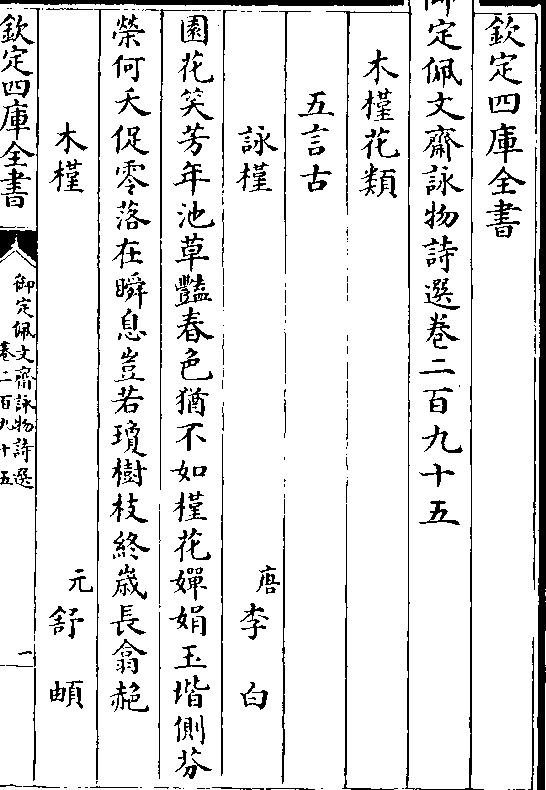 欽定四庫全書
御定佩文齋詠物詩選卷二百九十五
木槿花類
五言古
詠槿 唐 李白
園花笑芳年池草豔春色猶不如槿花嬋娟玉堦側芬
榮何夭促零落在瞬息豈若瓊樹枝終歲長翕赩
木槿 元 舒頔
欽定四庫全書
御定佩文齋詠物詩選
卷二百九十五
一